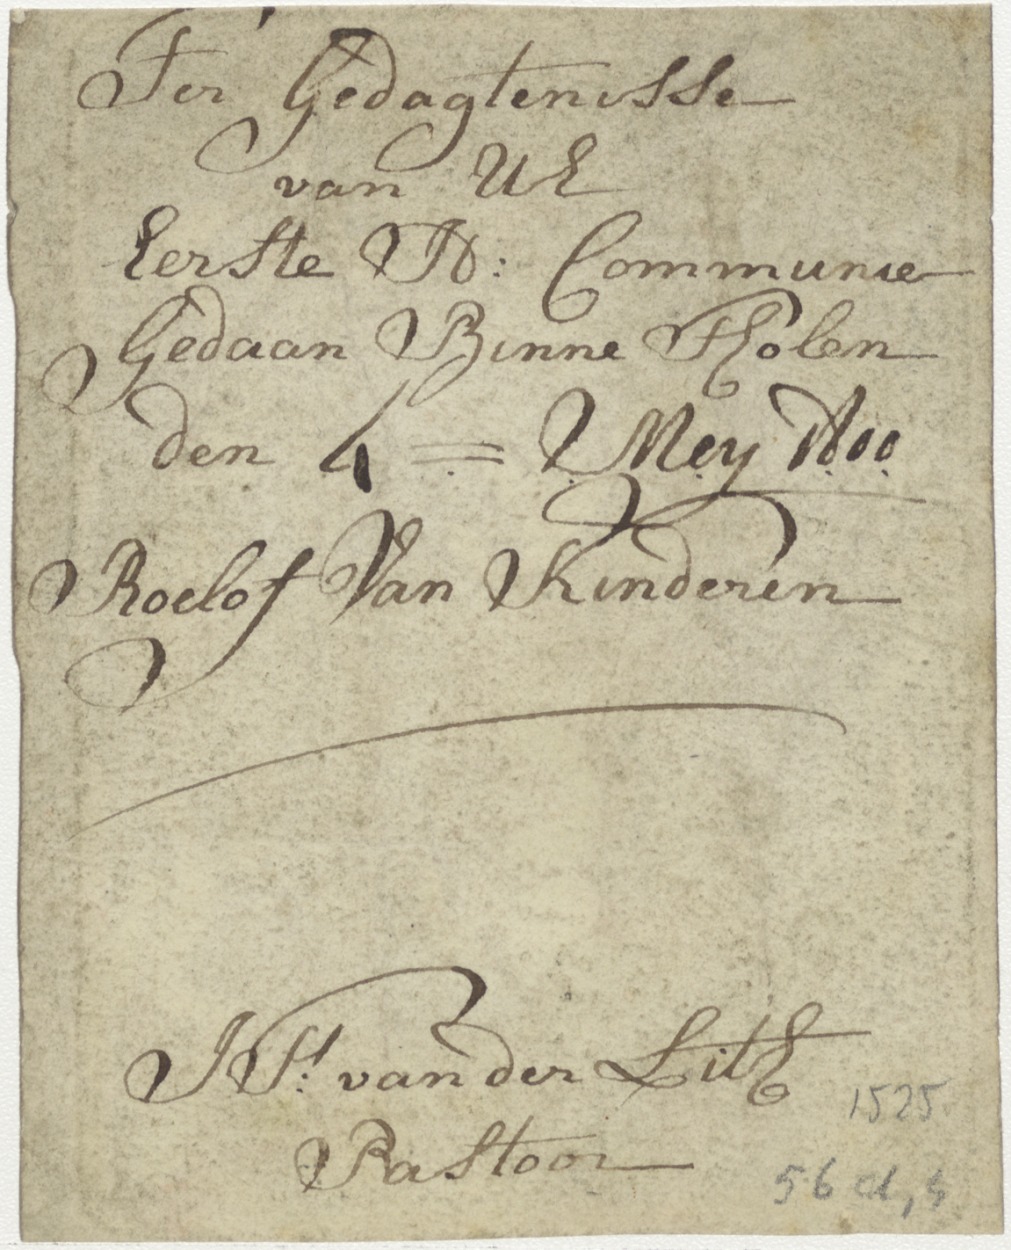 Ter Gedagtenisse
van UE
Eerste H: Communie
Gedaan Binne Tholen
den 4 = Mey 1800
Roelof Van Kinderen
van der Lith
Pastoor
1525
56 d, 4